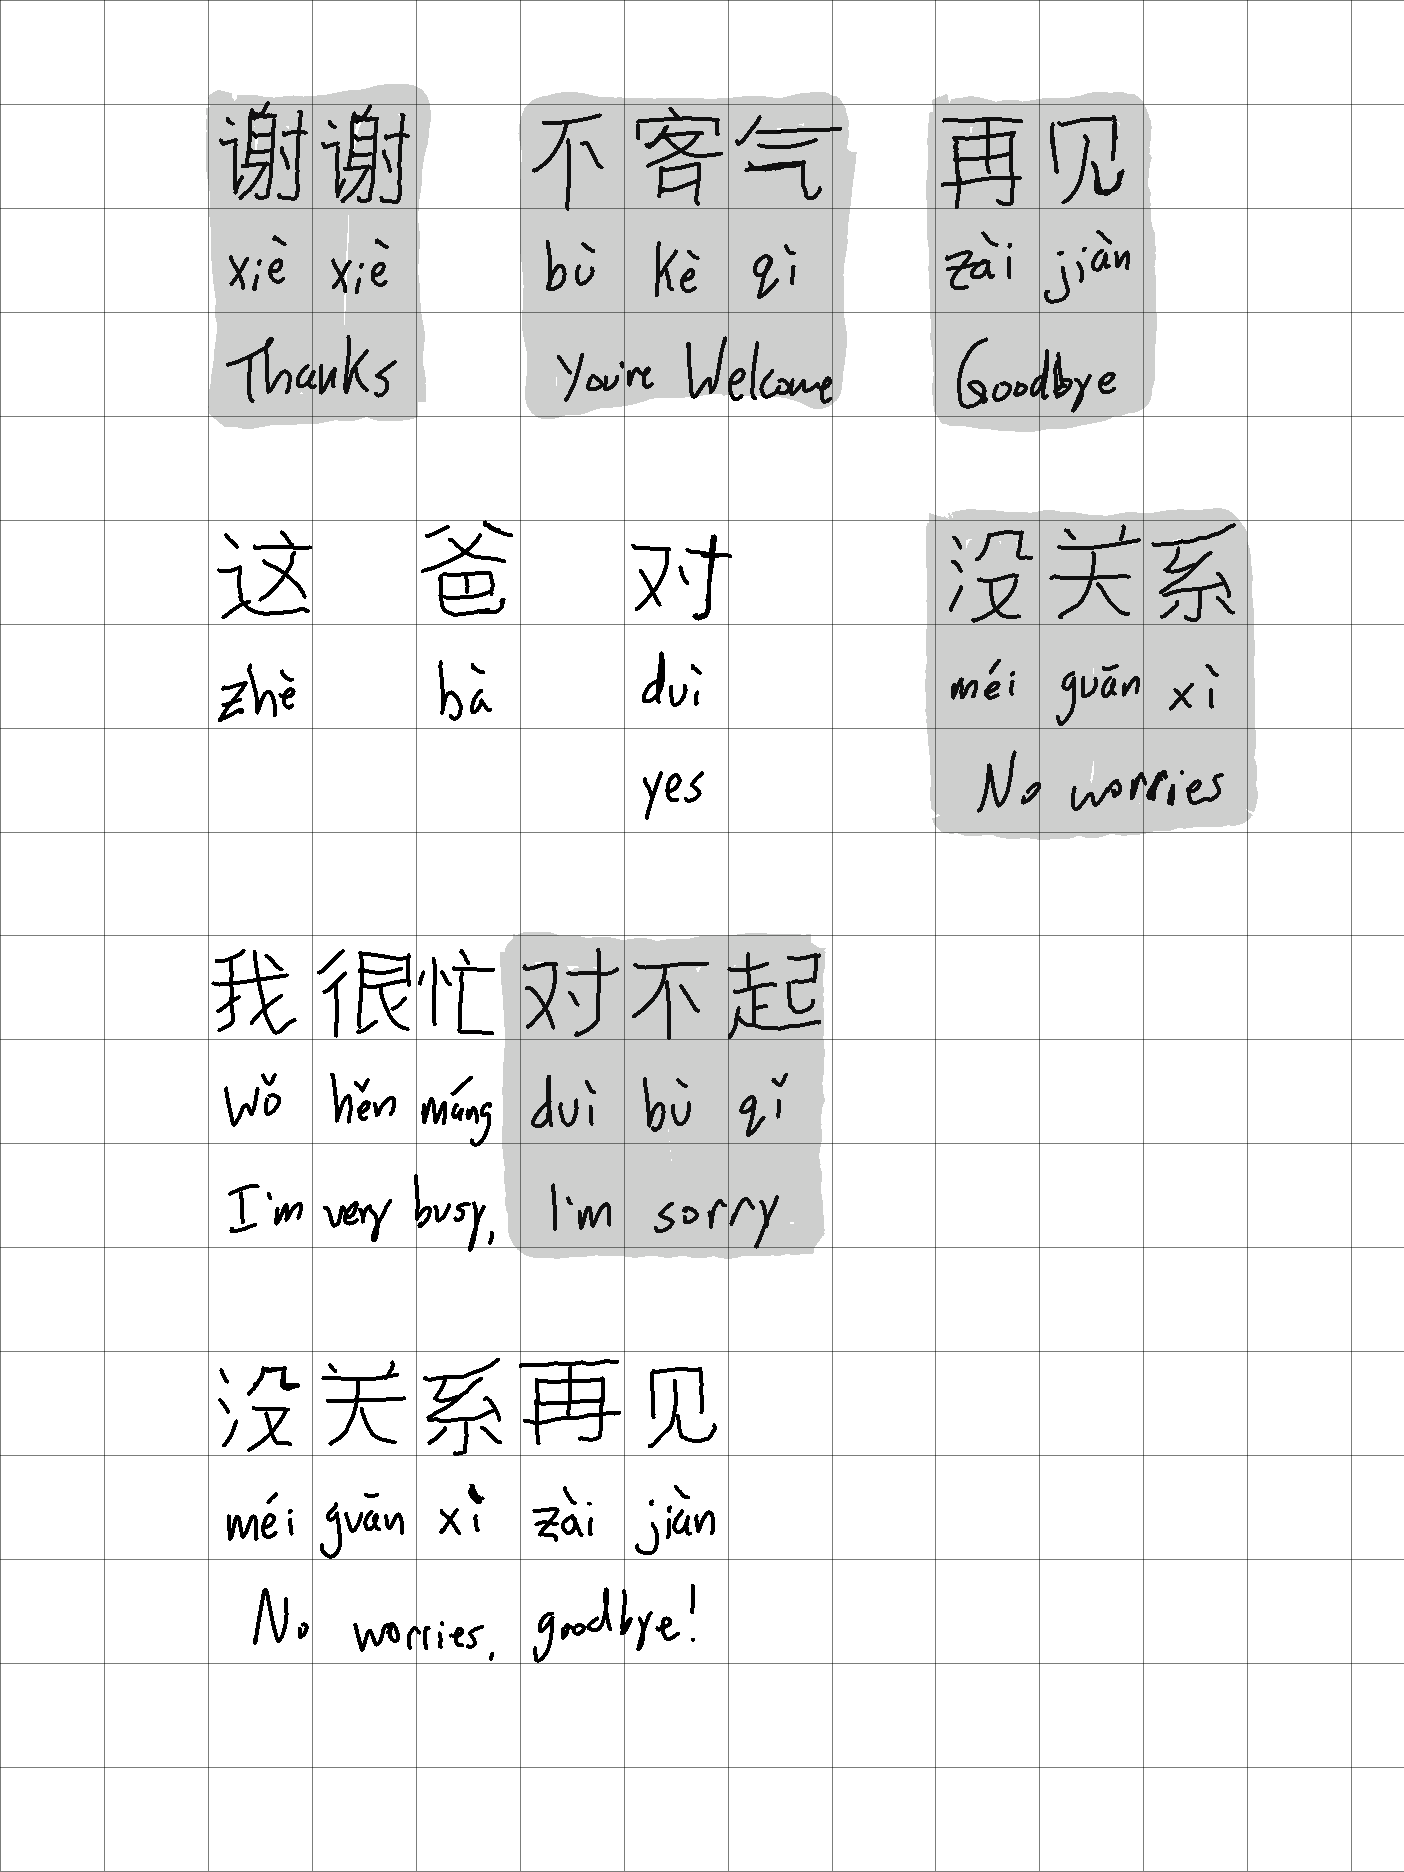 谢谢 不客气 再见
xiè xiè bù kè qì zài jiàn
Thanks You're Welcome Goodbye
这 爸 对 没关系
zhè bà duì méi guān xì
yes No worries
我很忙对不起
wǒ hěn máng duì bù qǐ
I'm very busy, I'm sorry
没关系再见
méi guān xì zài jiàn
No worries, goodbye!